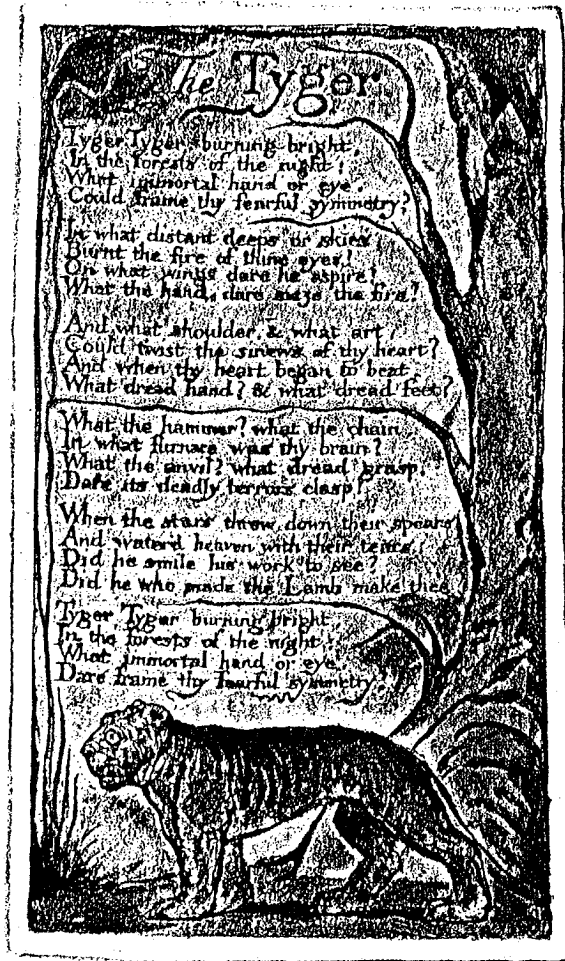 The Tyger
Tyger Tyger burning bright,
In the forests of the night;
What immortal hand or eye,
Could frame thy fearful symmetry?
In what distant deeps or skies
Burnt the fire of thine eyes?
On what wings dare he aspire?
What the hand, dare sieze the fire?
And what shoulder, & what art,
Could twist the sinews of thy heart?
And when thy heart began to beat,
What dread hand? & what dread feet?
What the hammer? what the chain,
In what furnace was thy brain?
What the anvil? what dread grasp,
Dare its deadly terrors clasp?
When the stars threw down their spears
And water'd heaven with their tears:
Did he smile his work to see?
Did he who made the Lamb make thee?
Tyger Tyger burning bright,
In the forests of the night:
What immortal hand or eye,
Dare frame thy fearful symmetry?